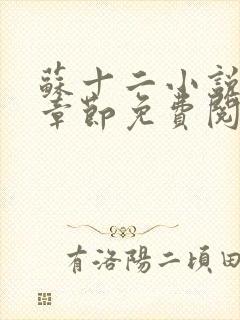 蘇十二小說
章節免費閱
有洛陽二頃田